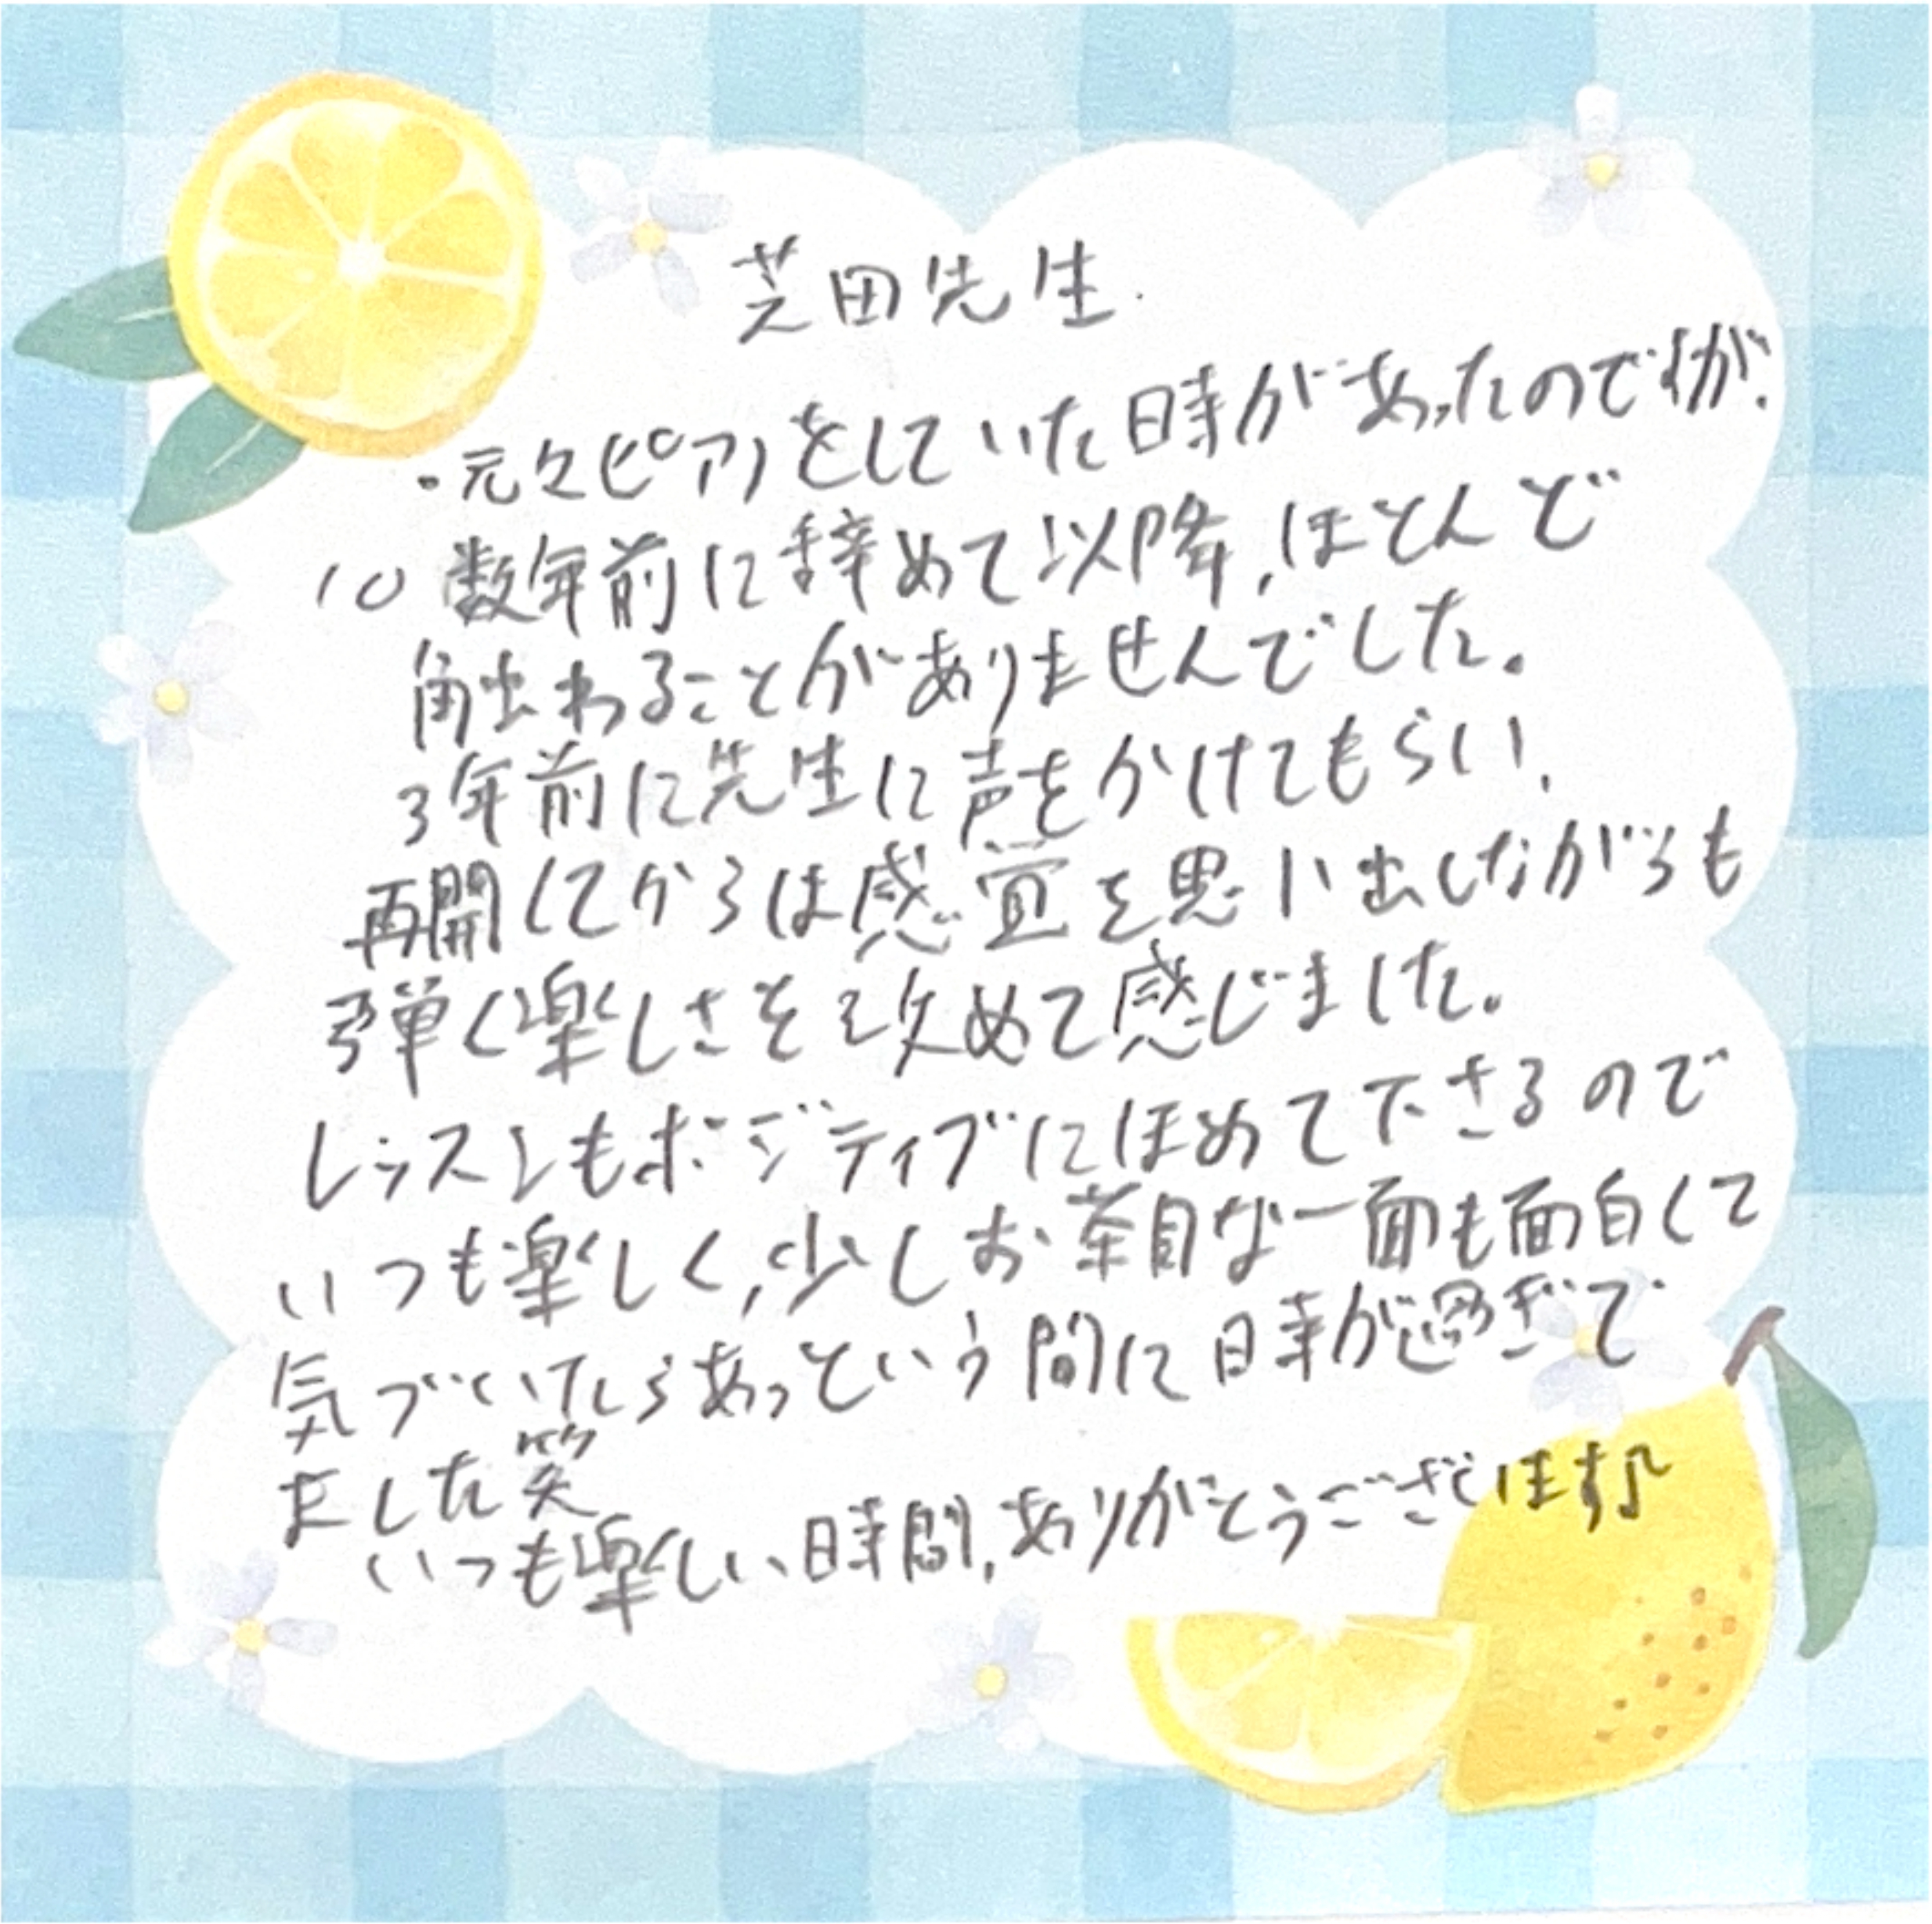 芝田先生.
・元々ピアノをしていた時があったのですが、
10数年前に辞めて以降,ほとんど
触わることがありませんでした。
3年前に先生に声をかけてもらい、
再開してからは感覚を思い出しながらも
弾く楽しさを改めて感じました。
レッスンもポジティブにほめて下さるので
いつも楽しく,少しお茶目な一面も面白くて
気づいたらあっという間に時が過ぎて
ました笑
いつも楽しい時間,ありがとうございます♪